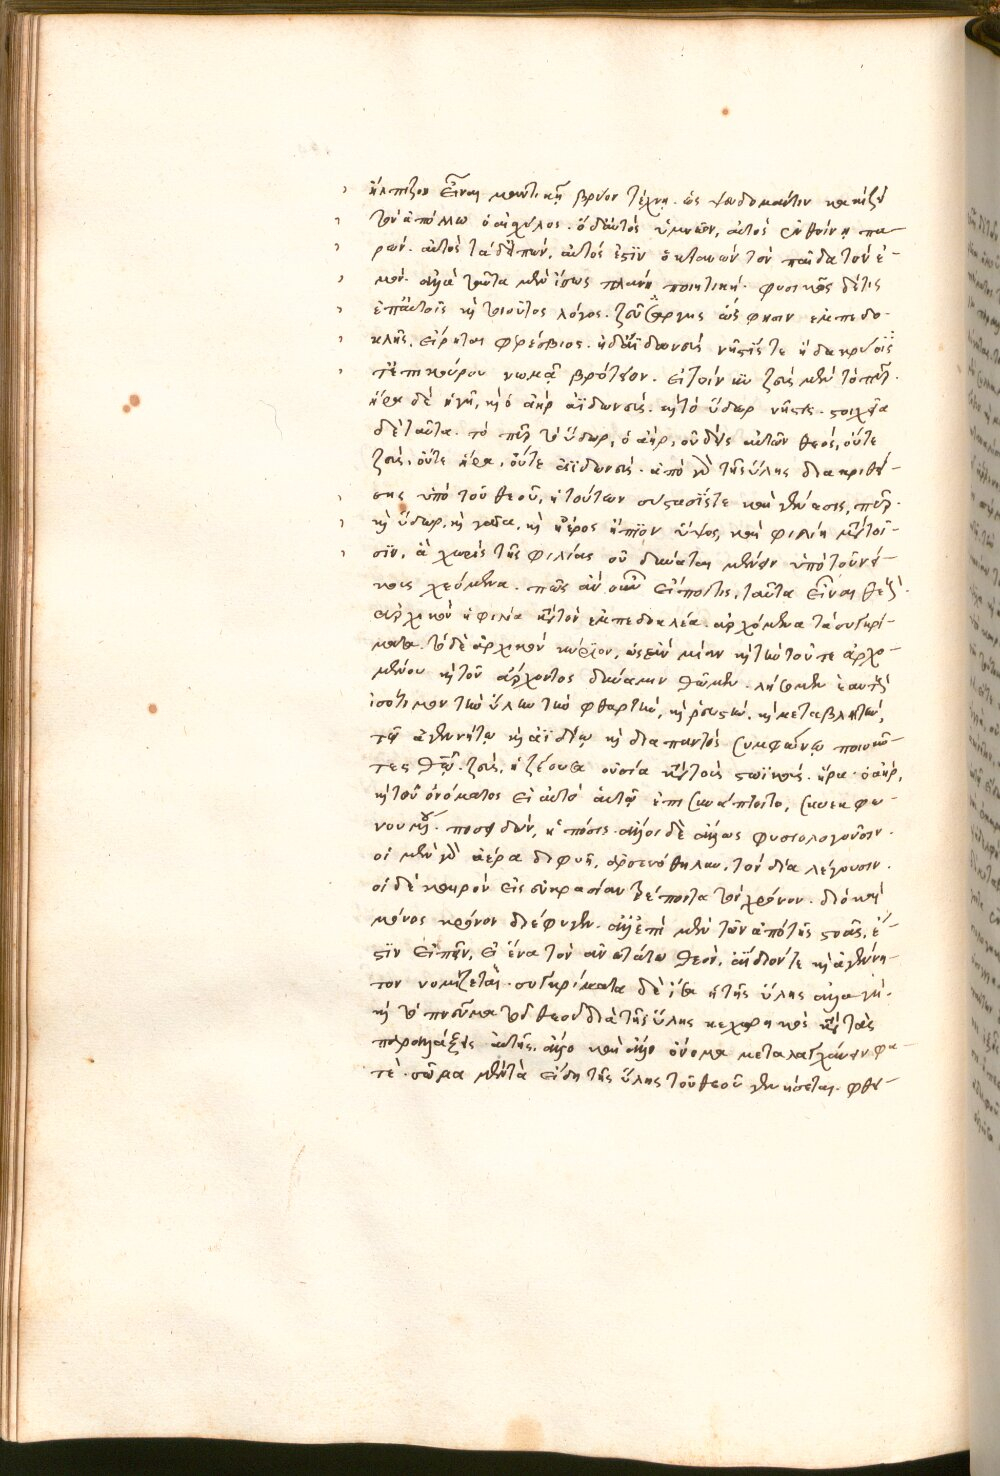 ἤλπιζον εἶναι μαντικῇ βρύον τέχνῃ. ὡς ψευδομάντιν κακίζει
τὸν ἀπόλλω ὁ αἰσχύλος. ὁ δ' αὐτὸς ὑμνῶν, αὐτὸς ἐν θοίνῃ πα-
ρών. αὐτὸς τάδ' εἰπών, αὐτός ἐστὶν ὁ κτανὼν τὸν παῖδα τὸν ἐ-
μόν. ἀλλὰ ταῦτα μὲν ἴσως πλάνη ποιητική. φυσικὸς δέ τις
ἐπ' αὐτοῖς καὶ τοιοῦτος λόγος. ζεὺς ἀργὴς ὥς φησιν ἐμπεδο-
κλῆς, εἴρηται φερέσβιος. ἠδ' ἀϊδωνεὺς νῆστίς τε ἣ δακρύοις
τ' ἐπικούρου νωμᾷ βρότειον. εἰ τοίνυν ζεὺς μὲν τὸ πῦρ.
ἥρα δὲ ἡ γῆ, καὶ ὁ ἀὴρ ἀϊδωνεύς. καὶ τὸ ὕδωρ νῆστις. στοιχεῖα
δὲ ταῦτα. τὸ πῦρ τὸ ὕδωρ, ὁ ἀὴρ, οὐδεὶς αὐτῶν θεός, οὔτε
ζεύς, οὔτε ἥρα, οὔτε ἀϊδωνεύς. ἀπὸ γὰρ τῆς ὕλης διακριθεί-
σης ὑπὸ τοῦ θεοῦ, ἡ τούτων σύστασίς τε καὶ γένεσις, πῦρ.
καὶ ὕδωρ, καὶ γαῖα, καὶ ἠέρος ἤπιον ὕψος, καὶ φιλίη μετὰ τοῖ-
σιν, ἃ χωρὶς τῆς φιλίας οὐ δύναται μένειν ὑπὸ τοῦ νεί-
κους χεόμενα. πῶς ἂν οὖν εἴποι τις, ταῦτα εἶναι θεοί.
ἀρχικὸν ἡ φιλία κατὰ τὸν ἐμπεδοκλέα. ἀρχόμενα τὰ συγκρί-
ματα. τὸ δὲ ἀρχικὸν κύριον, ὥστε ἐὰν μίαν καὶ τὴν τοῦ τε ἀρχο-
μένου καὶ τοῦ ἄρχοντος δύναμιν θῶμεν. λήσομεν ἑαυτοὺς
ἰσότιμον τὴν ὕλην τὴν φθαρτήν, καὶ ῥευστήν, καὶ μεταβλητήν,
τῷ ἀγενήτῳ καὶ ἀϊδίῳ καὶ διαπαντὸς συμφώνῳ ποιοῦν-
τες θεῷ. ζεύς, ἡ ζέουσα οὐσία κατὰ τοὺς στωϊκούς. ἥρα ὁ ἀήρ,
καὶ τοῦ ὀνόματος εἰ αὐτὸ αὑτῷ ἐπισυνάπτοιτο, συνεκφω-
νουμένου. ποσειδῶν, ἡ πόσις. ἄλλοι δὲ ἄλλως φυσιολογοῦσιν.
οἱ μὲν γὰρ ἀέρα διφυῆ, ἀρσενόθηλυν, τὸν δία λέγουσιν.
οἱ δὲ καιρὸν εἰς εὐκρασίαν τρέποντα τὸν χρόνον. διὸ καὶ
μόνος κρόνον διέφυγεν. ἀλλ' ἐπὶ μὲν τῶν ἀπὸ τῆς στοᾶς, ἔ-
στιν εἰπεῖν, εἰ ἕνα τὸν ἀνωτάτω θεόν, ἀΐδιόν τε καὶ ἀγένη-
τον νομίζεται. συγκρίματα δὲ εἰς ἃ ἡ τῆς ὕλης ἀλλαγή.
καὶ τὸ πνεῦμα τοῦ θεοῦ διὰ τῆς ὕλης κεχωρηκὸς κατὰ τὰς
παραλλάξεις αὐτῆς, ἄλλο καὶ ἄλλο ὄνομα μεταλαγχάνειν φα-
τὲ. σῶμα μὲν τὰ εἴδη τῆς ὕλης τοῦ θεοῦ γενήσεται. φθει-